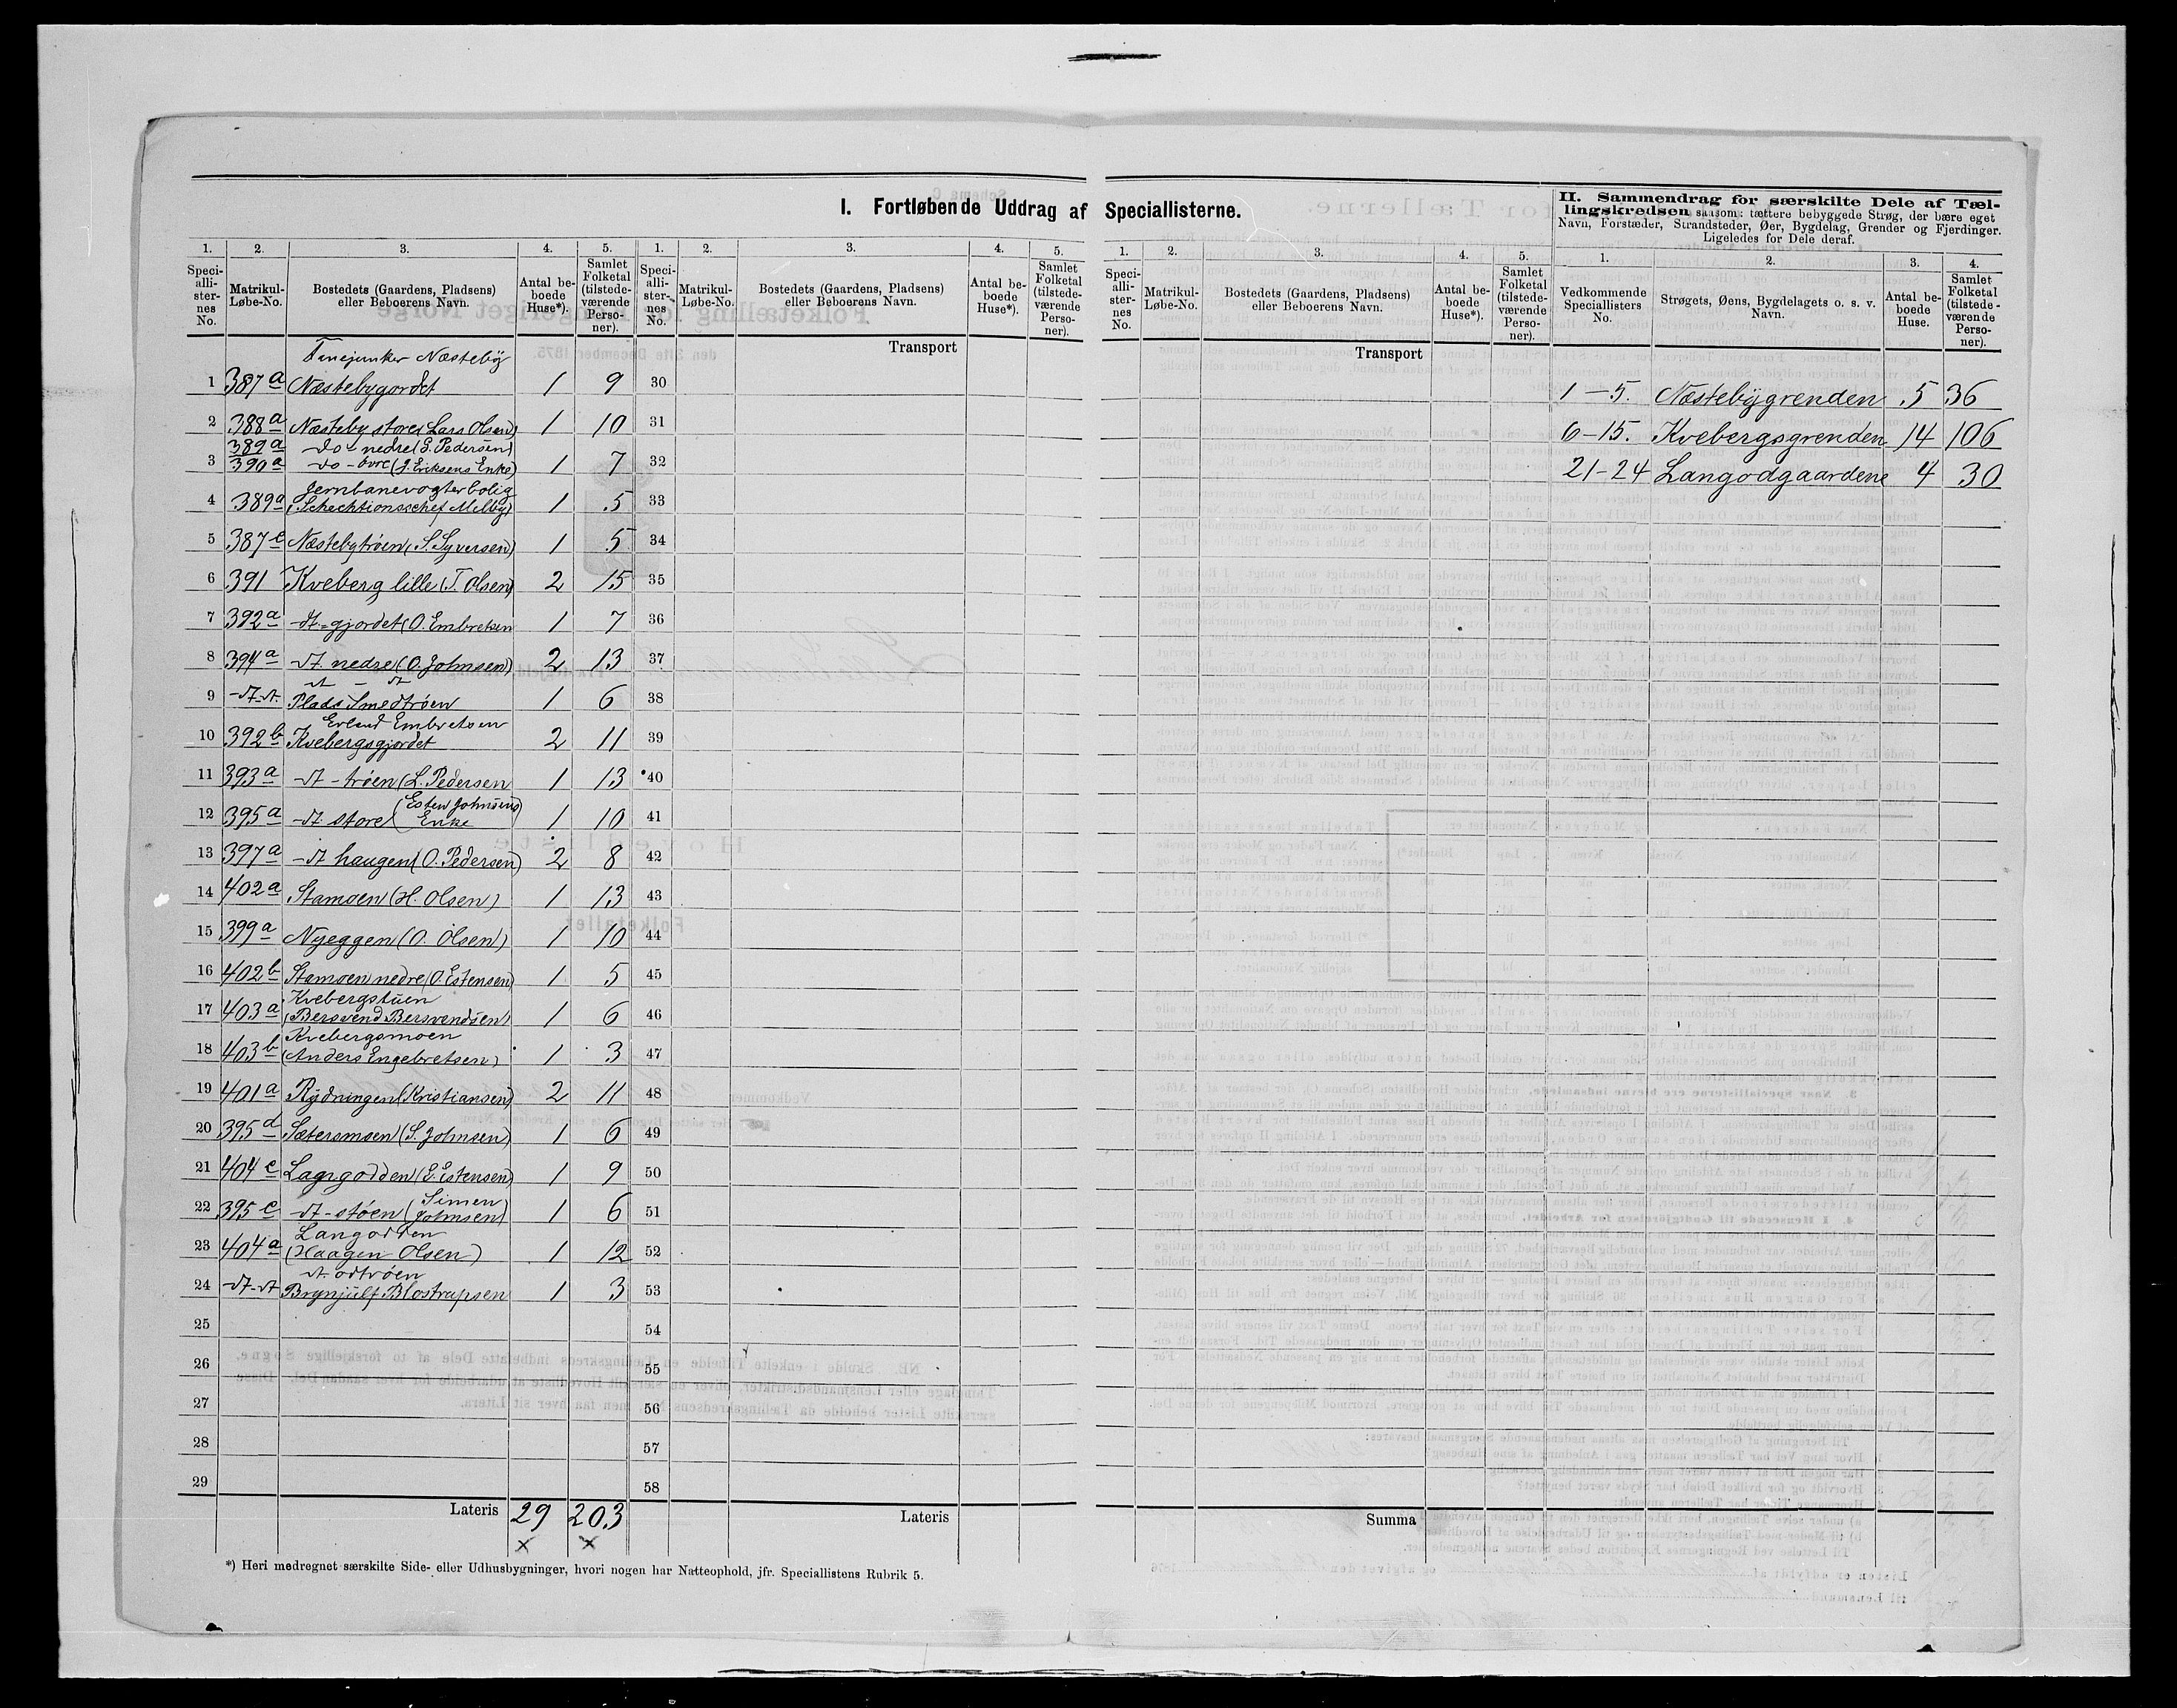 I. Fortløbende Uddrag af Speciallisterne.
II. Sammendrag for særskilte Dele af Tæl-
lingskredsen saasom: tættere bebyggede Strøg, der bære eget
Navn, Forstæder, Strandsteder, Øer, Bygdelag, Grender og Fjerdinger.
Ligeledes for Dele deraf.
1. 2. 3. 4. 5. 1. 2. 3. 4. 5. 1. 2. 3. 4. 5. 1. 2. 3. 4.
Speciallisternes No.
Matrikul-Løbe-No.
Bostedets (Gaardens, Pladsens) eller Beboerens Navn.
Antal beboede Huse*).
Samlet Folketal (tilstedeværende Personer).
Speciallisternes No.
Matrikul-Løbe-No.
Bostedets (Gaardens, Pladsens) eller Beboerens Navn.
Antal beboede Huse*).
Samlet Folketal (tilstedeværende Personer).
Speciallisternes No.
Matrikul-Løbe-No.
Bostedets (Gaardens, Pladsens) eller Beboerens Navn.
Antal beboede Huse*).
Samlet Folketal (tilstedeværende Personer).
Vedkommende Speciallisters No.
Strøgets, Øens, Bygdelagets o. s. v. Navn.
Antal beboede Huse.
Samlet Folketal (tilstedeværende Personer).
Transport
Transport
Næsteby
1 387a Næstebygordet 1 9 30
2 388a Næsteby store (Lars Olsen) 1 10 31
389a do nedre (E. Pedersen)
3 390a do - øvre (J. Eriksens Enke) 1 7 32
Jernbanevogterbolig
4 389a (Schechtionsschef Melby) 1 5 33
5 387c Næstebytrøen (S. Syversen) 1 5 34
6 391 Kveberg lille (T. Olsen) 2 15 35
7 392a -dt- gjordet (O. Embretsen 1 7 36
8 394a -dt nedre (O. Johnsen) 2 13 37
dt - dt
9 -dt-dt- Plads Smedtrøen 1 6 38
Erland Embretsen
10 392b Kvebergsgjordet 2 11 39
11 393a -dt- trøen (L. Pedersen 1 13 40
12 395a -dt store (Esten Johnsens Enke) 1 10 41
13 397a -dt haugen (O. Pedersen) 2 8 42
14 402a Stamoen (H. Olsen) 1 13 43
15 399a Nyeggen (O. Olsen) 1 10 44
16 402b Stamoen nedre (O. Estensen) 1 5 45
Kvebergstuen
17 403a (Bersvend Bersvendsen) 1 6 46
Kvebergsmoen
18 403b (Anders Engebretsen) 1 3 47
19 401a Rydningen (Kristiansen) 2 11 48
20 395d Sætersmoen (S. Johnsen) 1 6 49
21 404c Langodden (E. Estensen) 1 9 50
22 395c -dt- støen (Simen Johnsen) 1 6 51
Langodden
23 404a (Haagen Olsen) 1 12 52
dt. odtrøen
24 -dt-dt Brynjulf Blostrupsen 1 3 53
25 54
26 55
27 56
28 57
29 58
Lateris 29 203
Lateris
Summa
1-5. Næstebygrenden 5 36
6-15. Kvebergsgrenden 14 106
21-24 Langodgaardene 4 30
*) Heri medregnet særskilte Side- eller Udhusbygninger, hvori nogen har Natteophold, jfr. Speciallistens Rubrik 5.